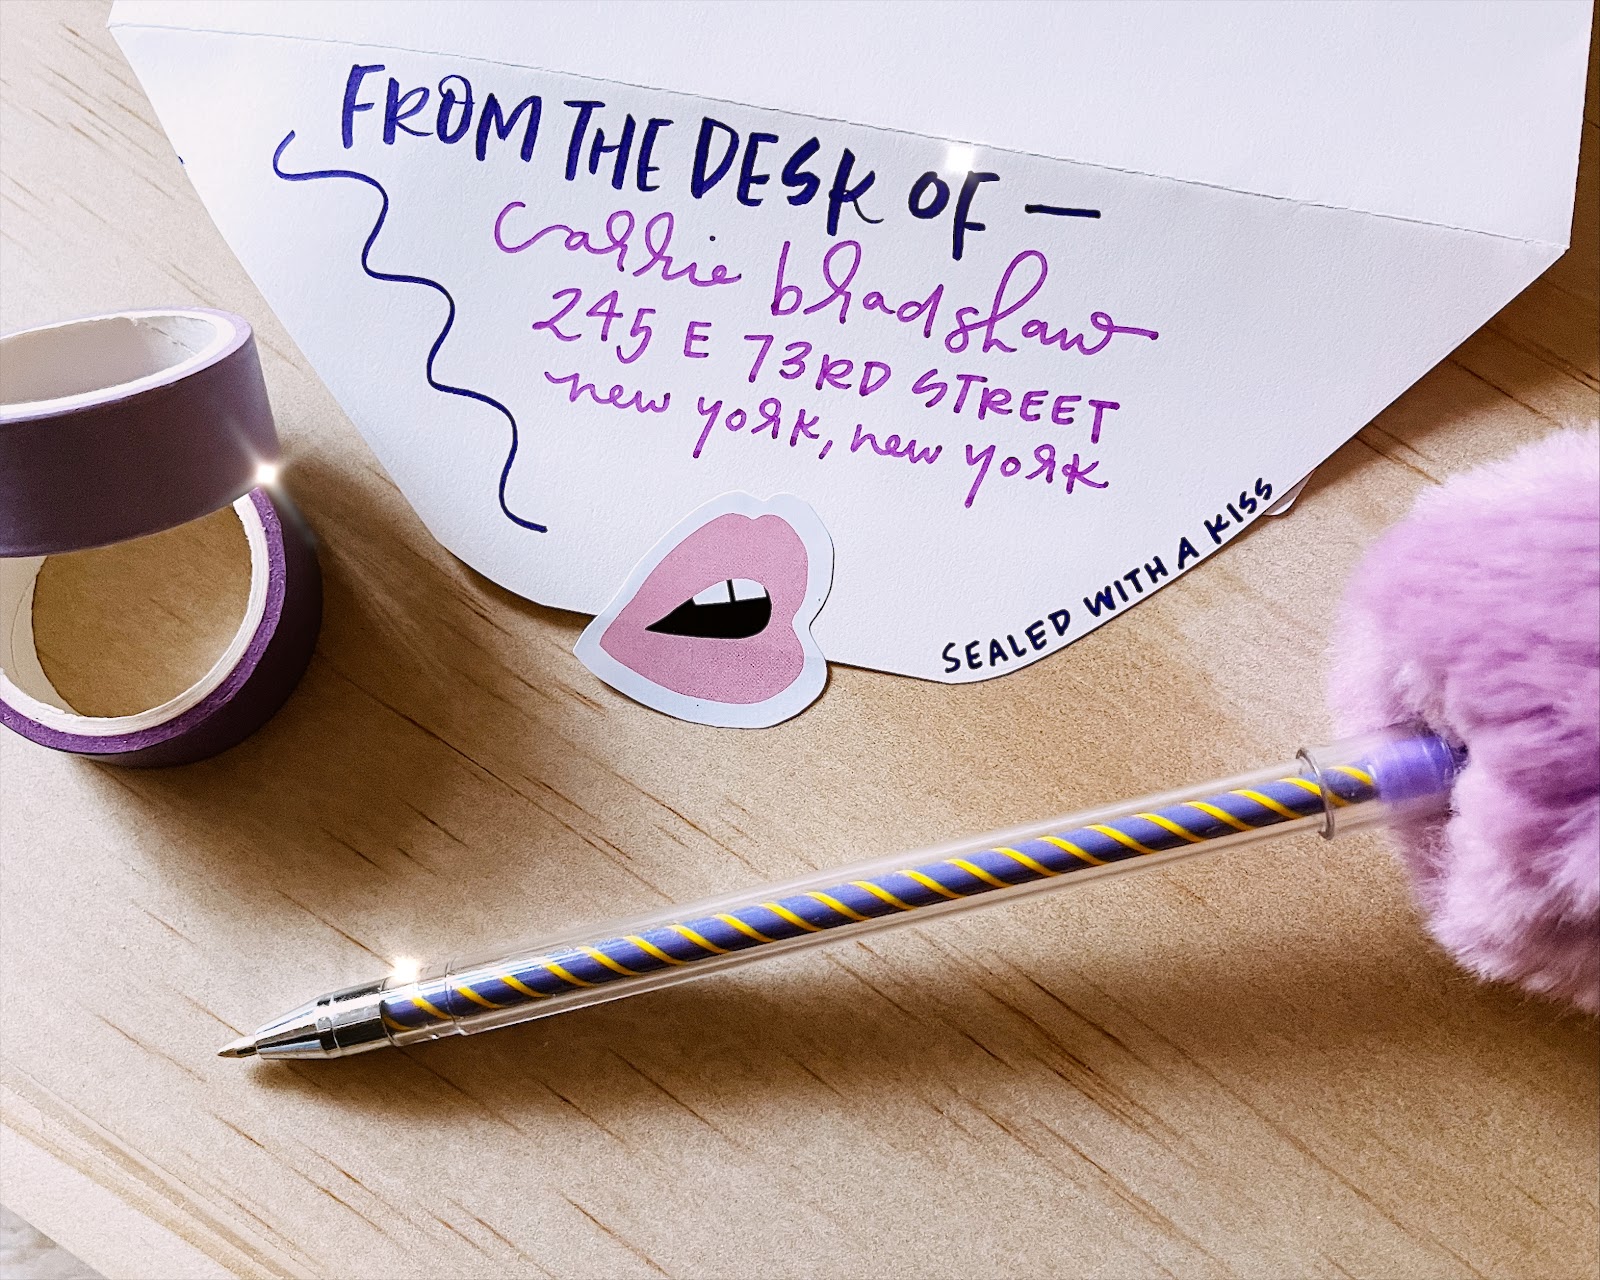 FROM THE DESK OF —
carrie bradshaw
245 E 73RD STREET
new york, new york
SEALED WITH A KISS